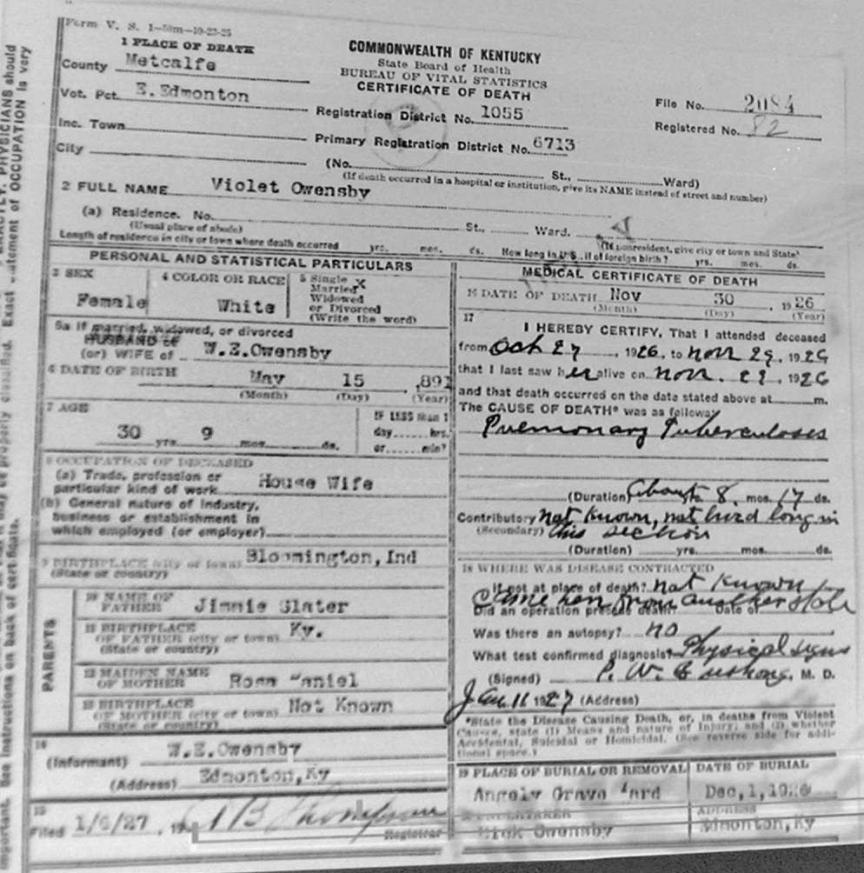 Form V. S. 1-50m-10-23-25
1 PLACE OF DEATH
County Metcalfe
Vot. Pct. E. Edmonton
Inc. Town
City
COMMONWEALTH OF KENTUCKY
State Board of Health
BUREAU OF VITAL STATISTICS
CERTIFICATE OF DEATH
Registration District No. 1055
Primary Registration District No. 6713
File No. 2084
Registered No. 82
(No. St., Ward)
(If death occurred in a hospital or institution, give its NAME instead of street and number)
2 FULL NAME Violet Owensby
(a) Residence. No. St., Ward.
(Usual place of abode) (If nonresident, give city or town and State)
Length of residence in city or town where death occurred yrs. mos. ds. How long in U.S. if of foreign birth? yrs. mos. ds.
PERSONAL AND STATISTICAL PARTICULARS
3 SEX
Female
4 COLOR OR RACE
White
5 Single
Married X
Widowed
or Divorced
(Write the word)
5a If married, widowed, or divorced
HUSBAND of
(or) WIFE of W.E.Owensby
6 DATE OF BIRTH May 15 ,891
(Month) (Day) (Year)
7 AGE
30 yrs. 9 mos. ds.
IF LESS than 1
day hrs.
or min?
8 OCCUPATION OF DECEASED
(a) Trade, profession or
particular kind of work House Wife
(b) General nature of industry,
business or establishment in
which employed (or employer)
9 BIRTHPLACE (city or town) Bloomington, Ind
(State or country)
PARENTS
10 NAME OF
FATHER Jimmie Slater
11 BIRTHPLACE
OF FATHER (city or town) Ky.
(State or country)
12 MAIDEN NAME
OF MOTHER Rosa Daniel
13 BIRTHPLACE
OF MOTHER (city or town) Not Known
(State or country)
14
(Informant) W.E.Owensby
(Address) Edmonton,Ky
15
Filed 1/6/27 , 19 Thompson
Registrar
MEDICAL CERTIFICATE OF DEATH
16 DATE OF DEATH Nov 30 , 1926
(Month) (Day) (Year)
17 I HEREBY CERTIFY, That I attended deceased
from Oct 27, 1926, to Nov 29, 1926
that I last saw her alive on Nov. 29, 1926
and that death occurred on the date stated above at m.
The CAUSE OF DEATH* was as follows:
Pulmonary Tuberculoses
(Duration) About 8 mos. 17 ds.
Contributory not known, not lived long in
(Secondary) this section
(Duration) yrs. mos. ds.
18 WHERE WAS DISEASE CONTRACTED
if not at place of death? not known
Came here from another state
Did an operation precede death? Date of
Was there an autopsy? no
What test confirmed diagnosis? Physical signs
(Signed) P. W. Bushong, M. D.
Jan 11 1927 (Address)
*State the Disease Causing Death, or, in deaths from Violent
Causes, state (1) Means and nature of Injury; and (2) whether
Accidental, Suicidal or Homicidal. (See reverse side for addi-
tional space.)
19 PLACE OF BURIAL OR REMOVAL
Angely Grave Yard
DATE OF BURIAL
Dec,1,1926
20 UNDERTAKER
Dick Owensby
ADDRESS
Edmonton,Ky